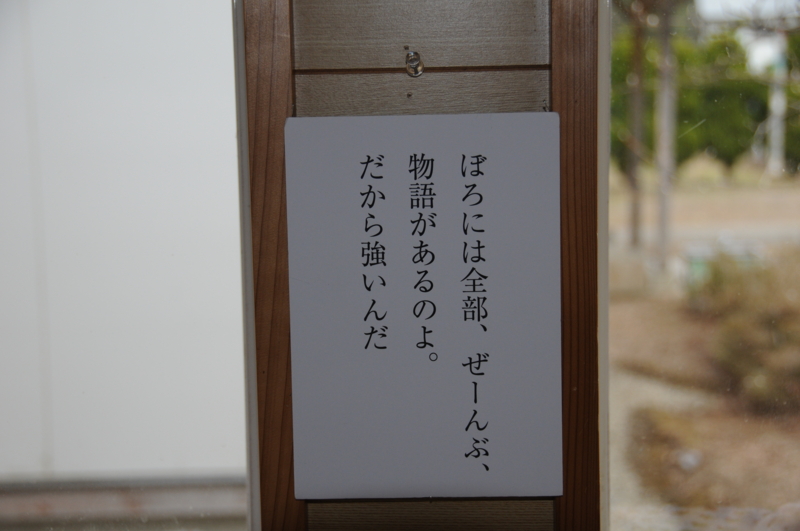 ぼろには全部、ぜーんぶ、
物語があるのよ。
だから強いんだ